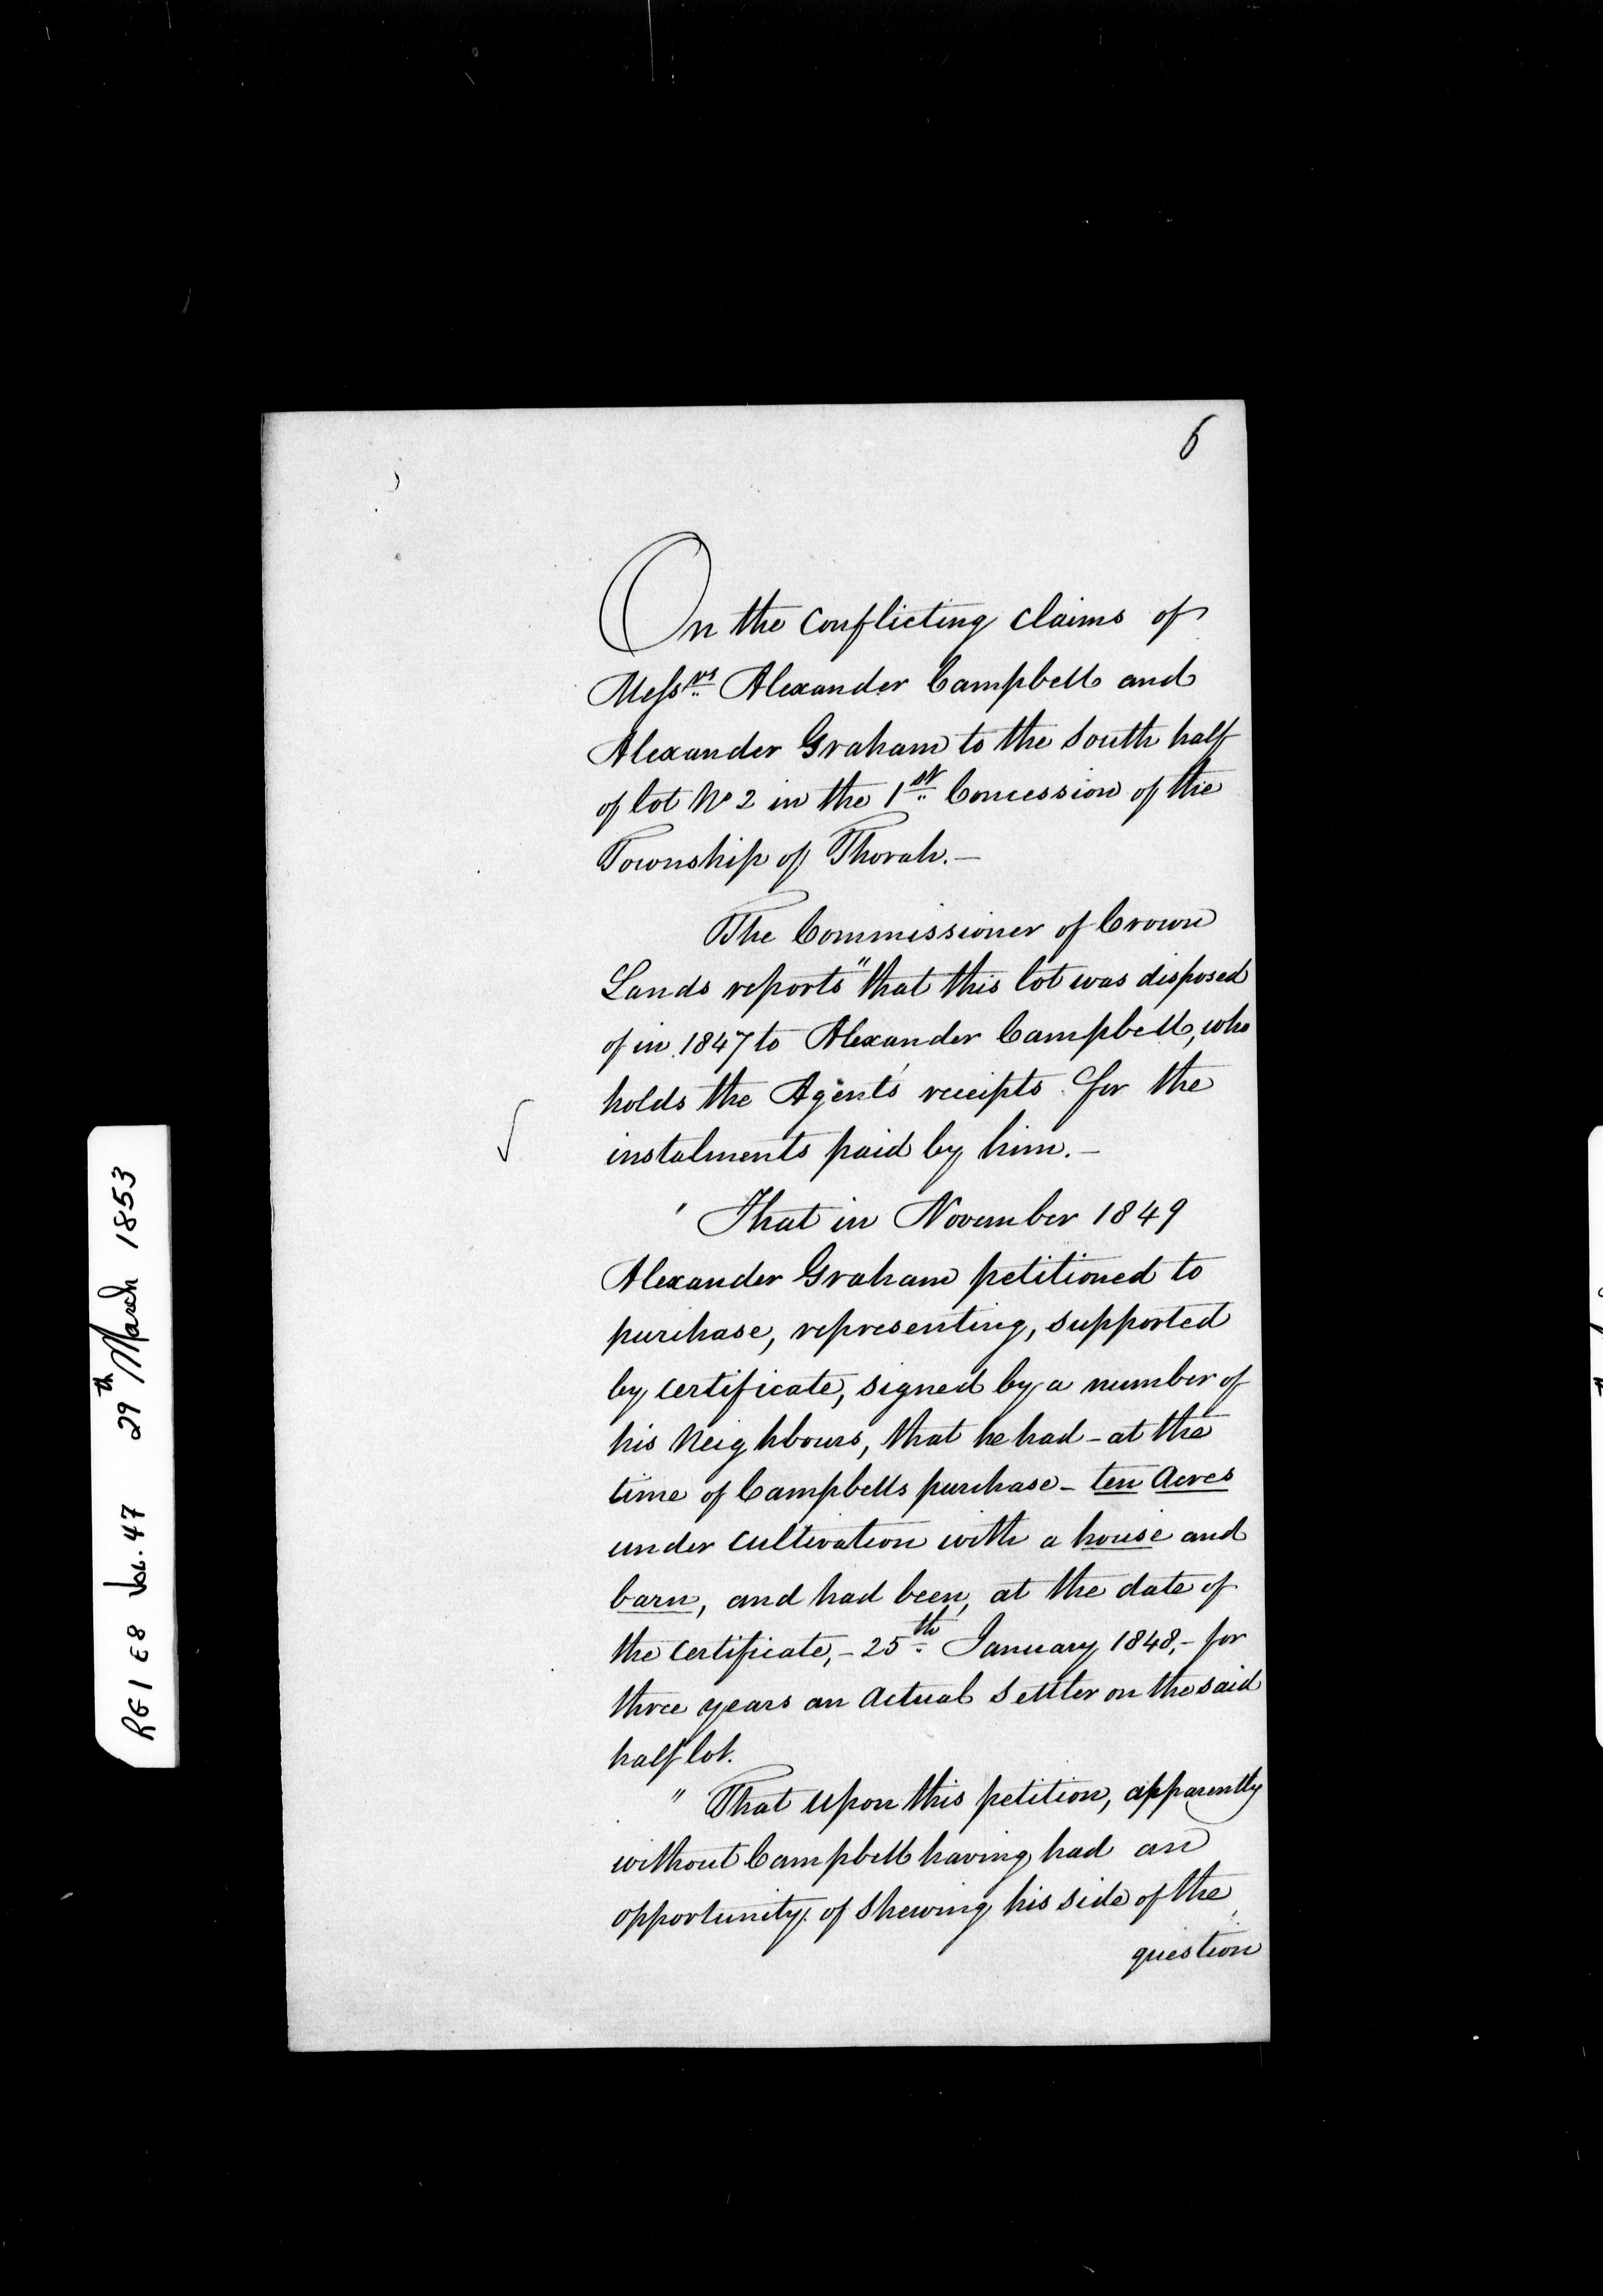 6
On the conflicting claims of
Messrs Alexander Campbell and
Alexander Graham to the South half
of lot No 2 in the 1st Concession of the
Township of Thorah.—
The Commissioner of Crown
Lands reports "that this lot was disposed
of in 1847 to Alexander Campbell, who
holds the Agent's receipts for the
instalments paid by him.—
' That in November 1849
Alexander Graham petitioned to
purchase, representing, supported
by certificate, signed by a number of
his Neighbours, that he had - at the
time of Campbells purchase - ten Acres
under cultivation with a house and
barn, and had been, at the date of
the certificate, - 25th January 1848, - for
three years an actual Settler on the said
half lot.
" That upon this petition, apparently
without Campbell having had an
opportunity of shewing his side of the
question
RG1 E8 Vol. 47 29th March 1853